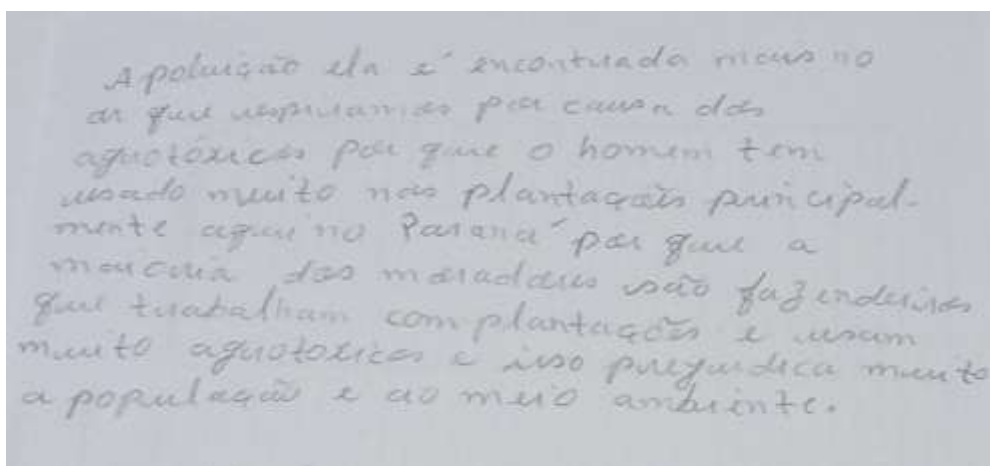 A poluição ela é encontrada mais no
ar que respiramos por causa dos
agrotóxicos por que o homem tem
usado muito nas plantações principal-
mente aqui no Paraná por que a
maioria dos moradores são fazendeiros
que trabalham com plantações e usam
muito agrotoxicos e isso prejudica muito
a população e ao meio ambiente.